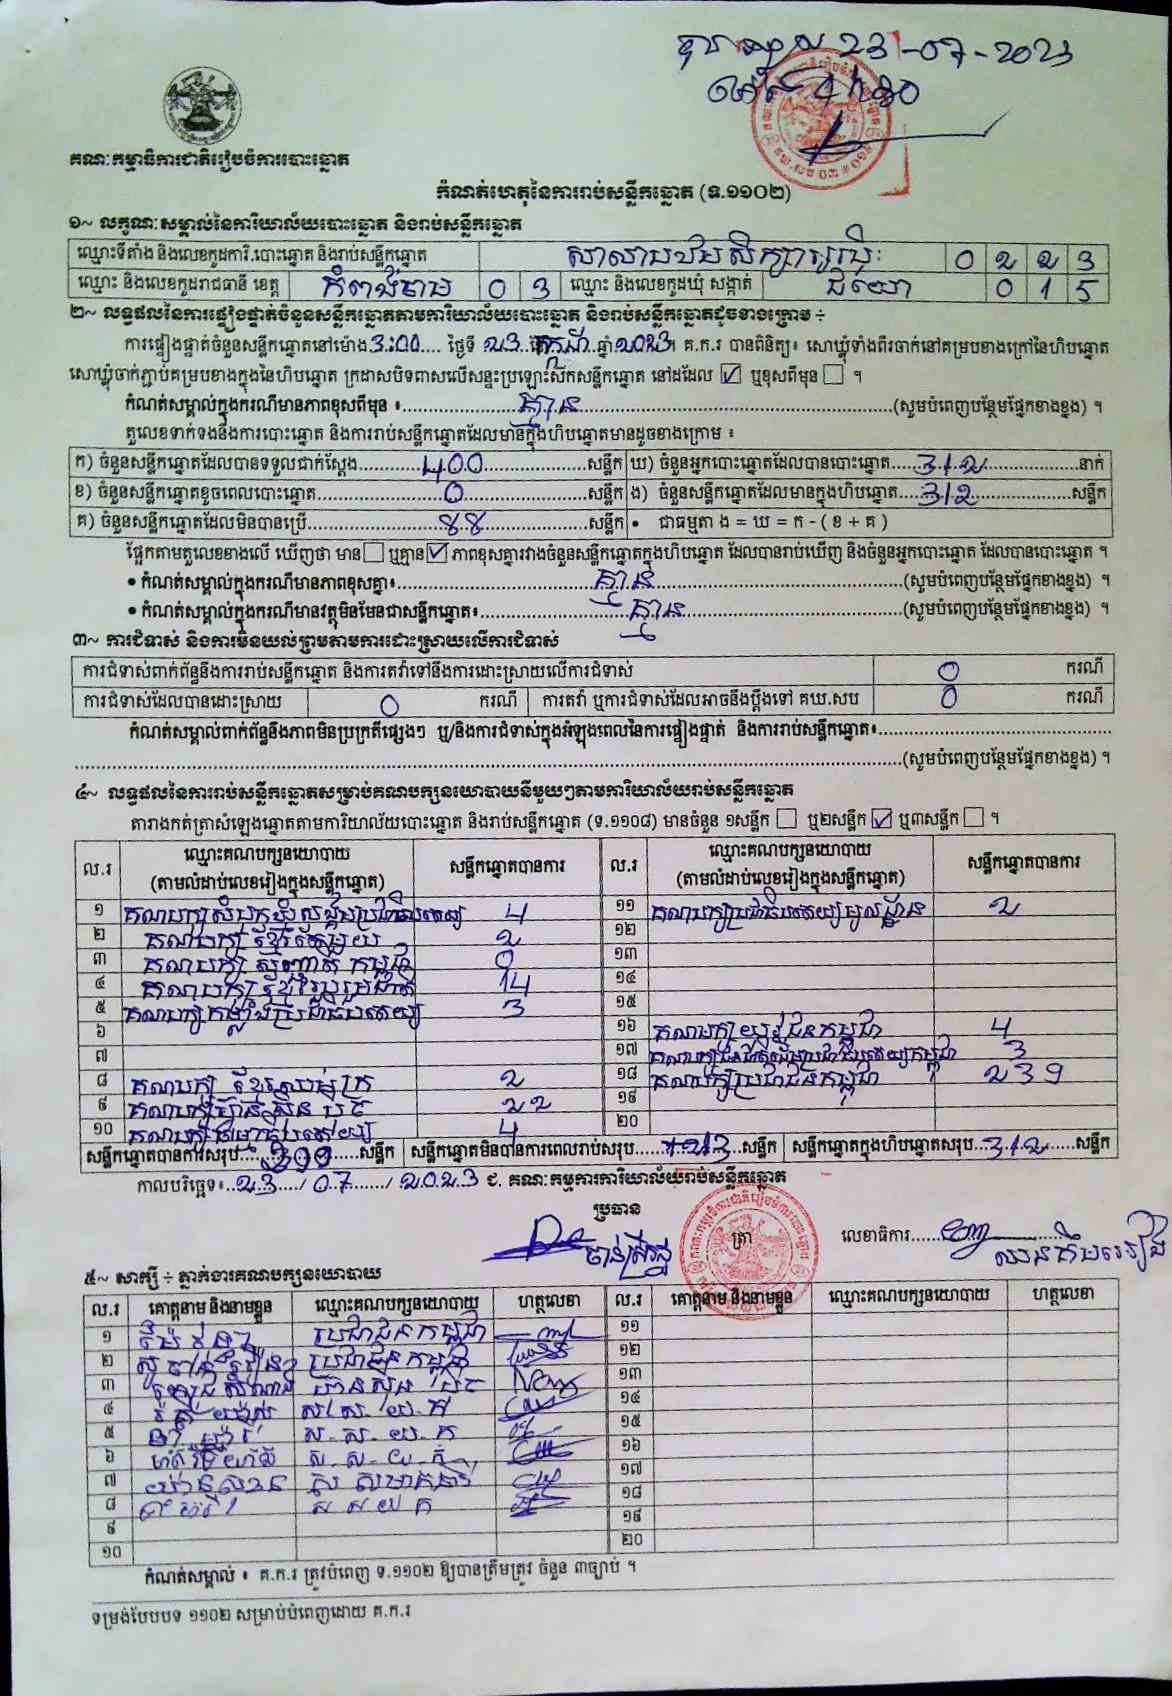 23-07-2023
គណៈកម្មាធិការជាតិរៀបចំការបោះឆ្នោត
កំណត់ហេតុនៃការរាប់សន្លឹកឆ្នោត (ទ.១១០២)
១~ លក្ខណៈសម្គាល់នៃការិយាល័យបោះឆ្នោត និងរាប់សន្លឹកឆ្នោត
ឈ្មោះទីតាំង និងលេខកូដការិ.បោះឆ្នោត និងរាប់សន្លឹកឆ្នោត សាលាបឋមសិក្សា 0 2 2 3
ឈ្មោះ និងលេខកូដរាជធានី ខេត្ត កំពង់ចាម 0 3 ឈ្មោះ និងលេខកូដឃុំ សង្កាត់ ជីយោ 0 1 5
២~ លទ្ធផលនៃការផ្ទៀងផ្ទាត់ចំនួនសន្លឹកឆ្នោតតាមការិយាល័យបោះឆ្នោត និងរាប់សន្លឹកឆ្នោតដូចខាងក្រោម ÷
ការផ្ទៀងផ្ទាត់ចំនួនសន្លឹកឆ្នោតនៅម៉ោង 3:00 ថ្ងៃទី 23 ខែ កក្កដា ឆ្នាំ 2023 ។ គ.ក.រ បានពិនិត្យ៖ សោឃ្លុំទាំងពីរចាក់នៅគម្របខាងក្រៅនៃហិបឆ្នោត
សោឃ្លុំចាក់ភ្ជាប់គម្របខាងក្នុងនៃហិបឆ្នោត ក្រដាសបិទពាសលើសន្ទះប្រឡោះស៊កសន្លឹកឆ្នោត នៅដដែល ☑ ឬខុសពីមុន ☐ ។
កំណត់សម្គាល់ក្នុងករណីមានភាពខុសពីមុន ៖ គ្មាន (សូមបំពេញបន្ថែមផ្នែកខាងខ្នង) ។
តួលេខទាក់ទងនឹងការបោះឆ្នោត និងការរាប់សន្លឹកឆ្នោតដែលមានក្នុងហិបឆ្នោតមានដូចខាងក្រោម ៖
ក) ចំនួនសន្លឹកឆ្នោតដែលបានទទួលជាក់ស្តែង 400 សន្លឹក ឃ) ចំនួនអ្នកបោះឆ្នោតដែលបានបោះឆ្នោត 312 នាក់
ខ) ចំនួនសន្លឹកឆ្នោតខូចពេលបោះឆ្នោត 0 សន្លឹក ង) ចំនួនសន្លឹកឆ្នោតដែលមានក្នុងហិបឆ្នោត 312 សន្លឹក
គ) ចំនួនសន្លឹកឆ្នោតដែលមិនបានប្រើ 88 សន្លឹក • ជាធម្មតា ង = ឃ = ក - ( ខ + គ )
ផ្អែកតាមតួលេខខាងលើ ឃើញថា មាន ☐ ឬគ្មាន ☑ ភាពខុសគ្នារវាងចំនួនសន្លឹកឆ្នោតក្នុងហិបឆ្នោត ដែលបានរាប់ឃើញ និងចំនួនអ្នកបោះឆ្នោត ដែលបានបោះឆ្នោត ។
• កំណត់សម្គាល់ក្នុងករណីមានភាពខុសគ្នា៖ គ្មាន (សូមបំពេញបន្ថែមផ្នែកខាងខ្នង) ។
• កំណត់សម្គាល់ក្នុងករណីមានវត្ថុមិនមែនជាសន្លឹកឆ្នោត៖ គ្មាន (សូមបំពេញបន្ថែមផ្នែកខាងខ្នង) ។
៣~ ការជំទាស់ និងការមិនយល់ព្រមតាមការដោះស្រាយលើការជំទាស់
ការជំទាស់ពាក់ព័ន្ធនឹងការរាប់សន្លឹកឆ្នោត និងការតវ៉ាទៅនឹងការដោះស្រាយលើការជំទាស់ 0 ករណី
ការជំទាស់ដែលបានដោះស្រាយ 0 ករណី ការតវ៉ា ឬការជំទាស់ដែលអាចនឹងប្តឹងទៅ គឃ.សប 0 ករណី
កំណត់សម្គាល់ពាក់ព័ន្ធនឹងភាពមិនប្រក្រតីផ្សេងៗ ឬ/និងការជំទាស់ក្នុងអំឡុងពេលនៃការផ្ទៀងផ្ទាត់ និងការរាប់សន្លឹកឆ្នោត៖
(សូមបំពេញបន្ថែមផ្នែកខាងខ្នង) ។
៤~ លទ្ធផលនៃការរាប់សន្លឹកឆ្នោតសម្រាប់គណបក្សនយោបាយនីមួយៗតាមការិយាល័យរាប់សន្លឹកឆ្នោត
តារាងកត់ត្រាសំឡេងឆ្នោតតាមការិយាល័យបោះឆ្នោត និងរាប់សន្លឹកឆ្នោត (ទ.១១០៨) មានចំនួន ១សន្លឹក ☐ ឬ២សន្លឹក ☑ ឬ៣សន្លឹក ☐ ។
ល.រ ឈ្មោះគណបក្សនយោបាយ (តាមលំដាប់លេខរៀងក្នុងសន្លឹកឆ្នោត) សន្លឹកឆ្នោតបានការ ល.រ ឈ្មោះគណបក្សនយោបាយ (តាមលំដាប់លេខរៀងក្នុងសន្លឹកឆ្នោត) សន្លឹកឆ្នោតបានការ
១ គណបក្សសំបុកឃ្មុំសង្គមប្រជាធិបតេយ្យ 4 ១១ គណបក្សប្រជាធិបតេយ្យមូលដ្ឋាន 2
២ គណបក្ស ខ្មែរតែមួយ 2 ១២
៣ គណបក្ស សញ្ជាតិ កម្ពុជា 0 ១៣
៤ គណបក្ស ខ្មែររួបរួមជាតិ 14 ១៤
៥ គណបក្សកម្លាំងប្រជាធិបតេយ្យ 3 ១៥
៦ ១៦ គណបក្ស យុវជនកម្ពុជា 4
៧ ១៧ គណបក្សជនជាតិដើមប្រជាធិបតេយ្យកម្ពុជា 3
៨ គណបក្ស ខ្មែរឈប់ក្រ 2 ១៨ គណបក្សប្រជាជនកម្ពុជា 239
៩ គណបក្សហ៊្វុនស៊ិនប៉ិច 22 ១៩
១០ គណបក្សធម្មាធិបតេយ្យ 4 ២០
សន្លឹកឆ្នោតបានការសរុប 299 សន្លឹក សន្លឹកឆ្នោតមិនបានការពេលរាប់សរុប 13 សន្លឹក សន្លឹកឆ្នោតក្នុងហិបឆ្នោតសរុប 312 សន្លឹក
កាលបរិច្ឆេទ៖ 23 / 07 / 2023 ជ. គណៈកម្មការការិយាល័យរាប់សន្លឹកឆ្នោត
ប្រធាន
ត្រា
លេខាធិការ
៥~ សាក្សី ÷ ភ្នាក់ងារគណបក្សនយោបាយ
ល.រ គោត្តនាម និងនាមខ្លួន ឈ្មោះគណបក្សនយោបាយ ហត្ថលេខា ល.រ គោត្តនាម និងនាមខ្លួន ឈ្មោះគណបក្សនយោបាយ ហត្ថលេខា
១ ប្រជាជនកម្ពុជា ១១
២ ប្រជាជនកម្ពុជា ១២
៣ ១៣
៤ ស. ស. យ. ក ១៤
៥ ស. ស. យ. ក ១៥
៦ ស. ស. យ. ក ១៦
៧ ១៧
៨ ស ស យ ក ១៨
៩ ១៩
១០ ២០
កំណត់សម្គាល់ ៖ គ.ក.រ ត្រូវបំពេញ ទ.១១០២ ឱ្យបានត្រឹមត្រូវ ចំនួន ៣ច្បាប់ ។
ទម្រង់បែបបទ ១១០២ សម្រាប់បំពេញដោយ គ.ក.រ